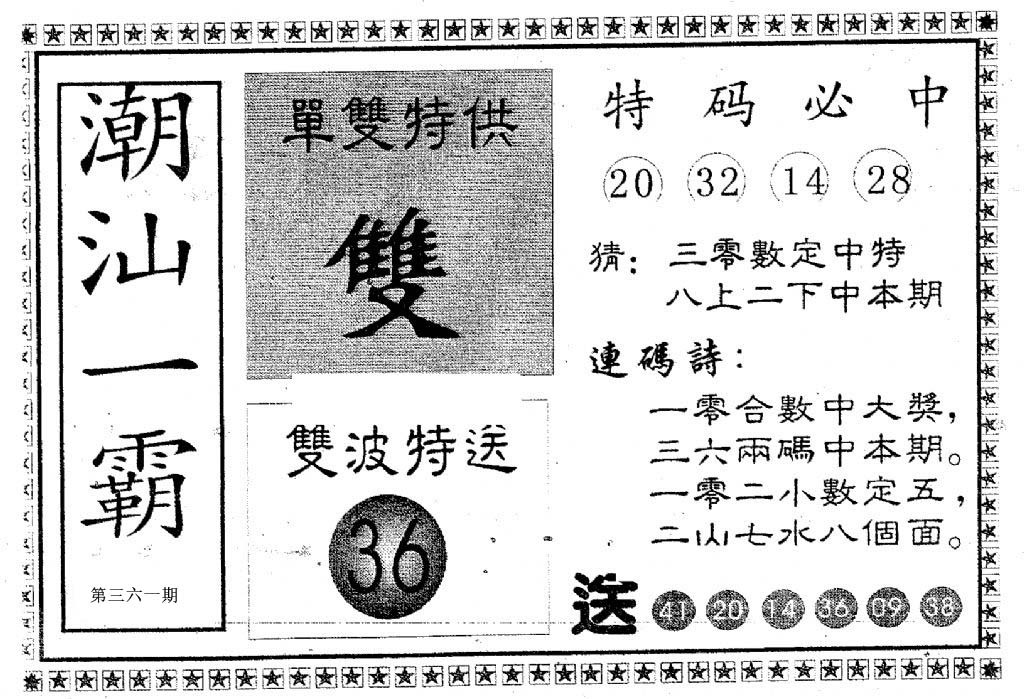 潮汕一霸
第三六一期
單雙特供
雙
雙波特送
36
特码必中
20 32 14 28
猜：三零數定中特
八上二下中本期
連碼詩：
一零合數中大獎，
三六兩碼中本期。
一零二小數定五，
二山七水八個面。
送 41 20 14 36 09 38